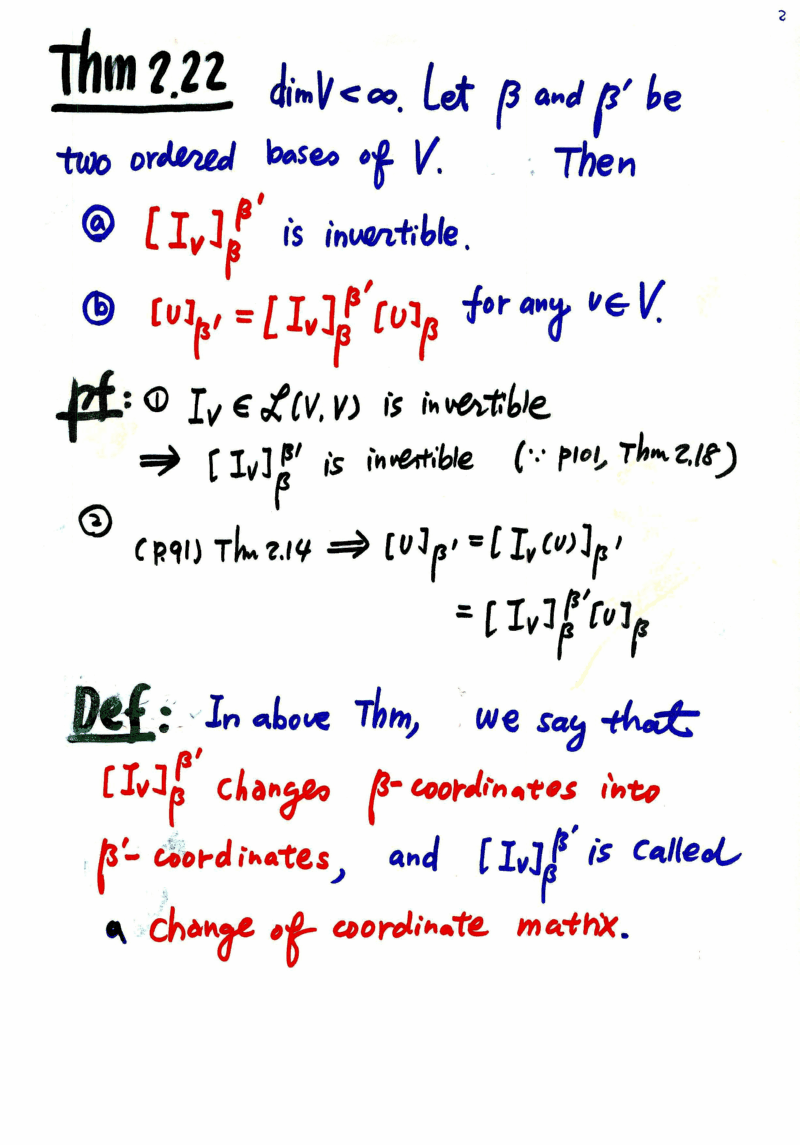 2
Thm 2.22 dim V < ∞. Let β and β' be
two ordered bases of V. Then
ⓐ [I_V]_β^β' is invertible.
ⓑ [v]_β' = [I_V]_β^β' [v]_β for any v ∈ V.
pf: ① I_V ∈ ℒ(V, V) is invertible
⇒ [I_V]_β^β' is invertible (∵ p101, Thm 2.18)
②
(P.91) Thm 2.14 ⇒ [v]_β' = [I_V(v)]_β'
= [I_V]_β^β' [v]_β
Def: In above Thm, we say that
[I_V]_β^β' changes β-coordinates into
β'-coordinates, and [I_V]_β^β' is called
a change of coordinate matrix.